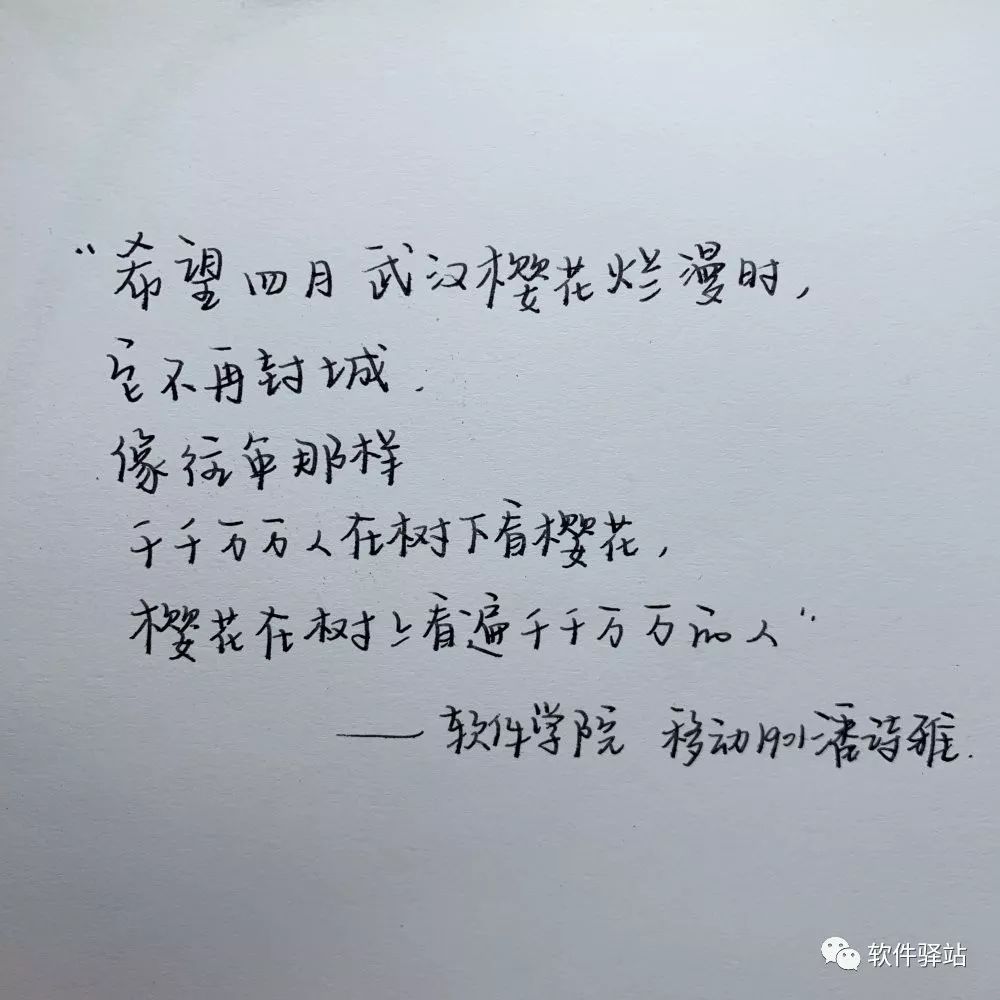 “希望四月武汉樱花烂漫时,
它不再封城.
像往年那样
千千万万人在树下看樱花,
樱花在树上看遍千千万万的人”
——软件学院 移动1901潘诗雅.
软件驿站